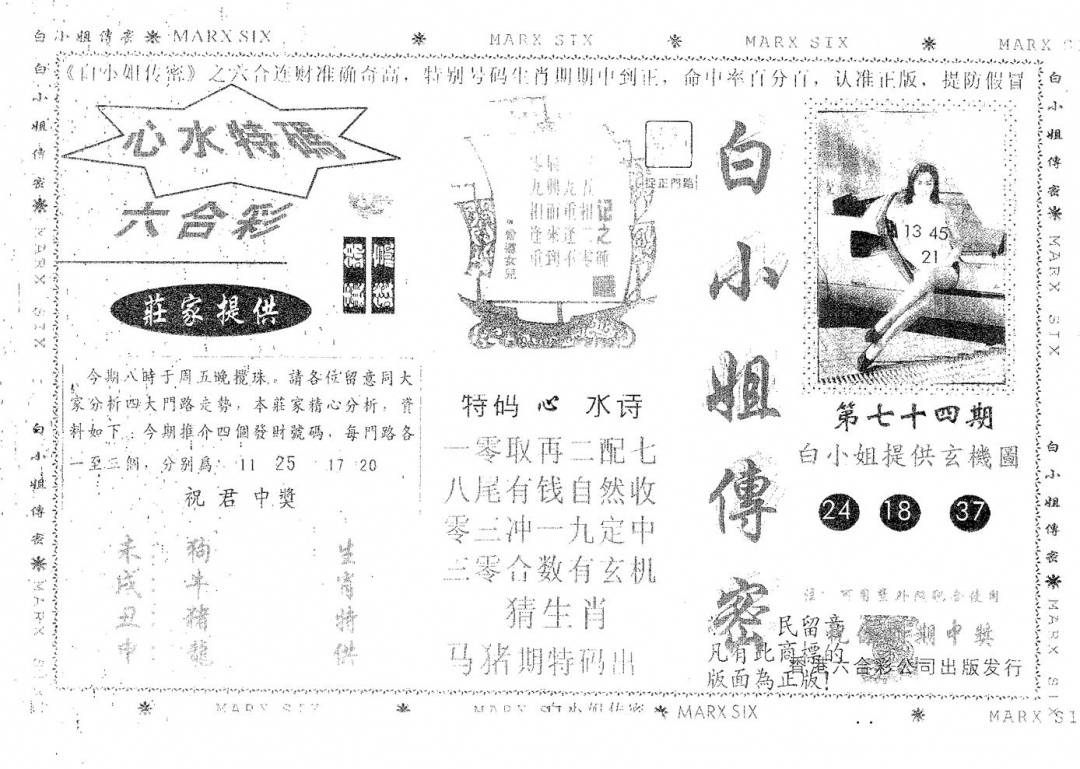 白小姐傳密 MARX SIX MARX SIX MARX SIX MARX SIX
《白小姐传密》之六合连财准确奇高，特别号码生肖期期中到正，命中率百分百，认准正版，提防假冒
白小姐傳密 MARX SIX
白小姐傳密 MARX SIX
心水特碼
六合彩
莊家提供
今期八時于周五晚攪珠。請各位留意同大
家分析四大門路走勢，本莊家精心分析，資
料如下：今期推介四個發財號碼，每門路各
一至三個，分别爲：11 25 17 20
祝君中獎
未：狗
戌：牛
丑：豬
申：龍
生肖特供
曾道女兒
特码心水诗
一零取再二配七
八尾有钱自然收
零三冲一九定中
三零合数有玄机
猜生肖
马猪期特码出
白小姐傳密
民留意
凡有此商標的
版面為正版!
13 45
21
第七十四期
白小姐提供玄機圖
24 18 37
期中獎
香港六合彩公司出版发行
白小姐傳密 MARX SIX
白小姐傳密 MARX SIX
MARX SIX MARX SIX 白小姐传密 MARX SIX MARX SIX